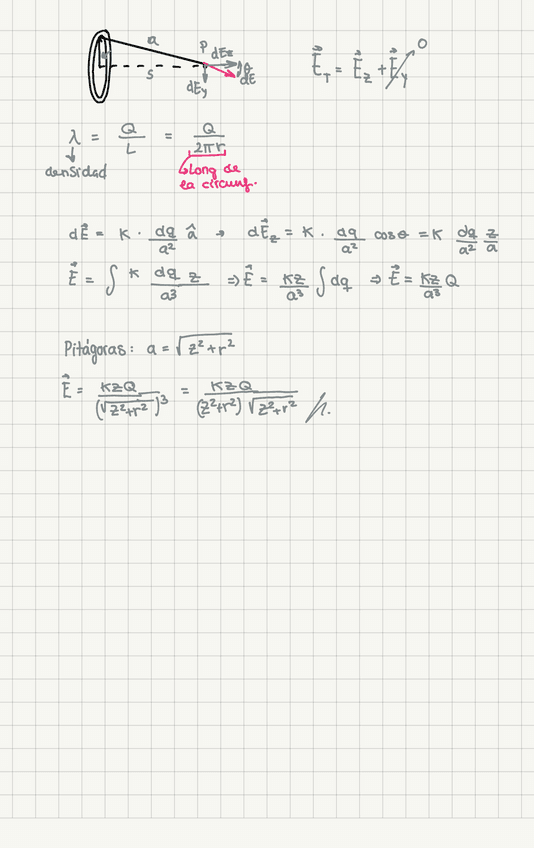 a P dEz
s dEy θ dE
E⃗_T = E⃗_z + E⃗_y 0
λ = Q/L = Q/2πr
densidad
long de
la circunf.
dE⃗ = K · dq/a² â → dE⃗_z = K · dq/a² cos θ = K dq/a² z/a
E⃗ = ∫ K dq z/a³ ⇒ E⃗ = Kz/a³ ∫ dq ⇒ E⃗ = Kz/a³ Q
Pitágoras: a = √(z²+r²)
E⃗ = KzQ/(√(z²+r²))³ = KzQ/(z²+r²)√(z²+r²)